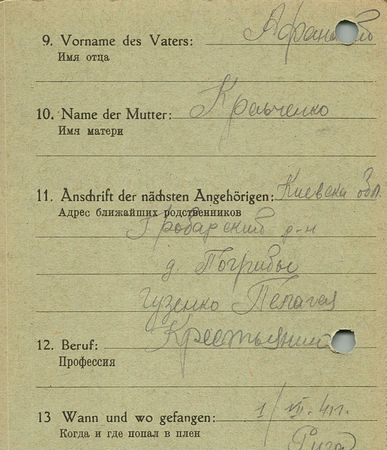 9. Vorname des Vaters:
Имя отца
10. Name der Mutter: Кравченко
Имя матери
11. Anschrift der nächsten Angehörigen: Киевска обл.
Адрес ближайших родственников
р-н
д. Погрибы
Гузенко Пелагея
12. Beruf: Крестьянин
Профессия
13 Wann und wo gefangen: 1/VII. 41 г.
Когда и где попал в плен
Рига